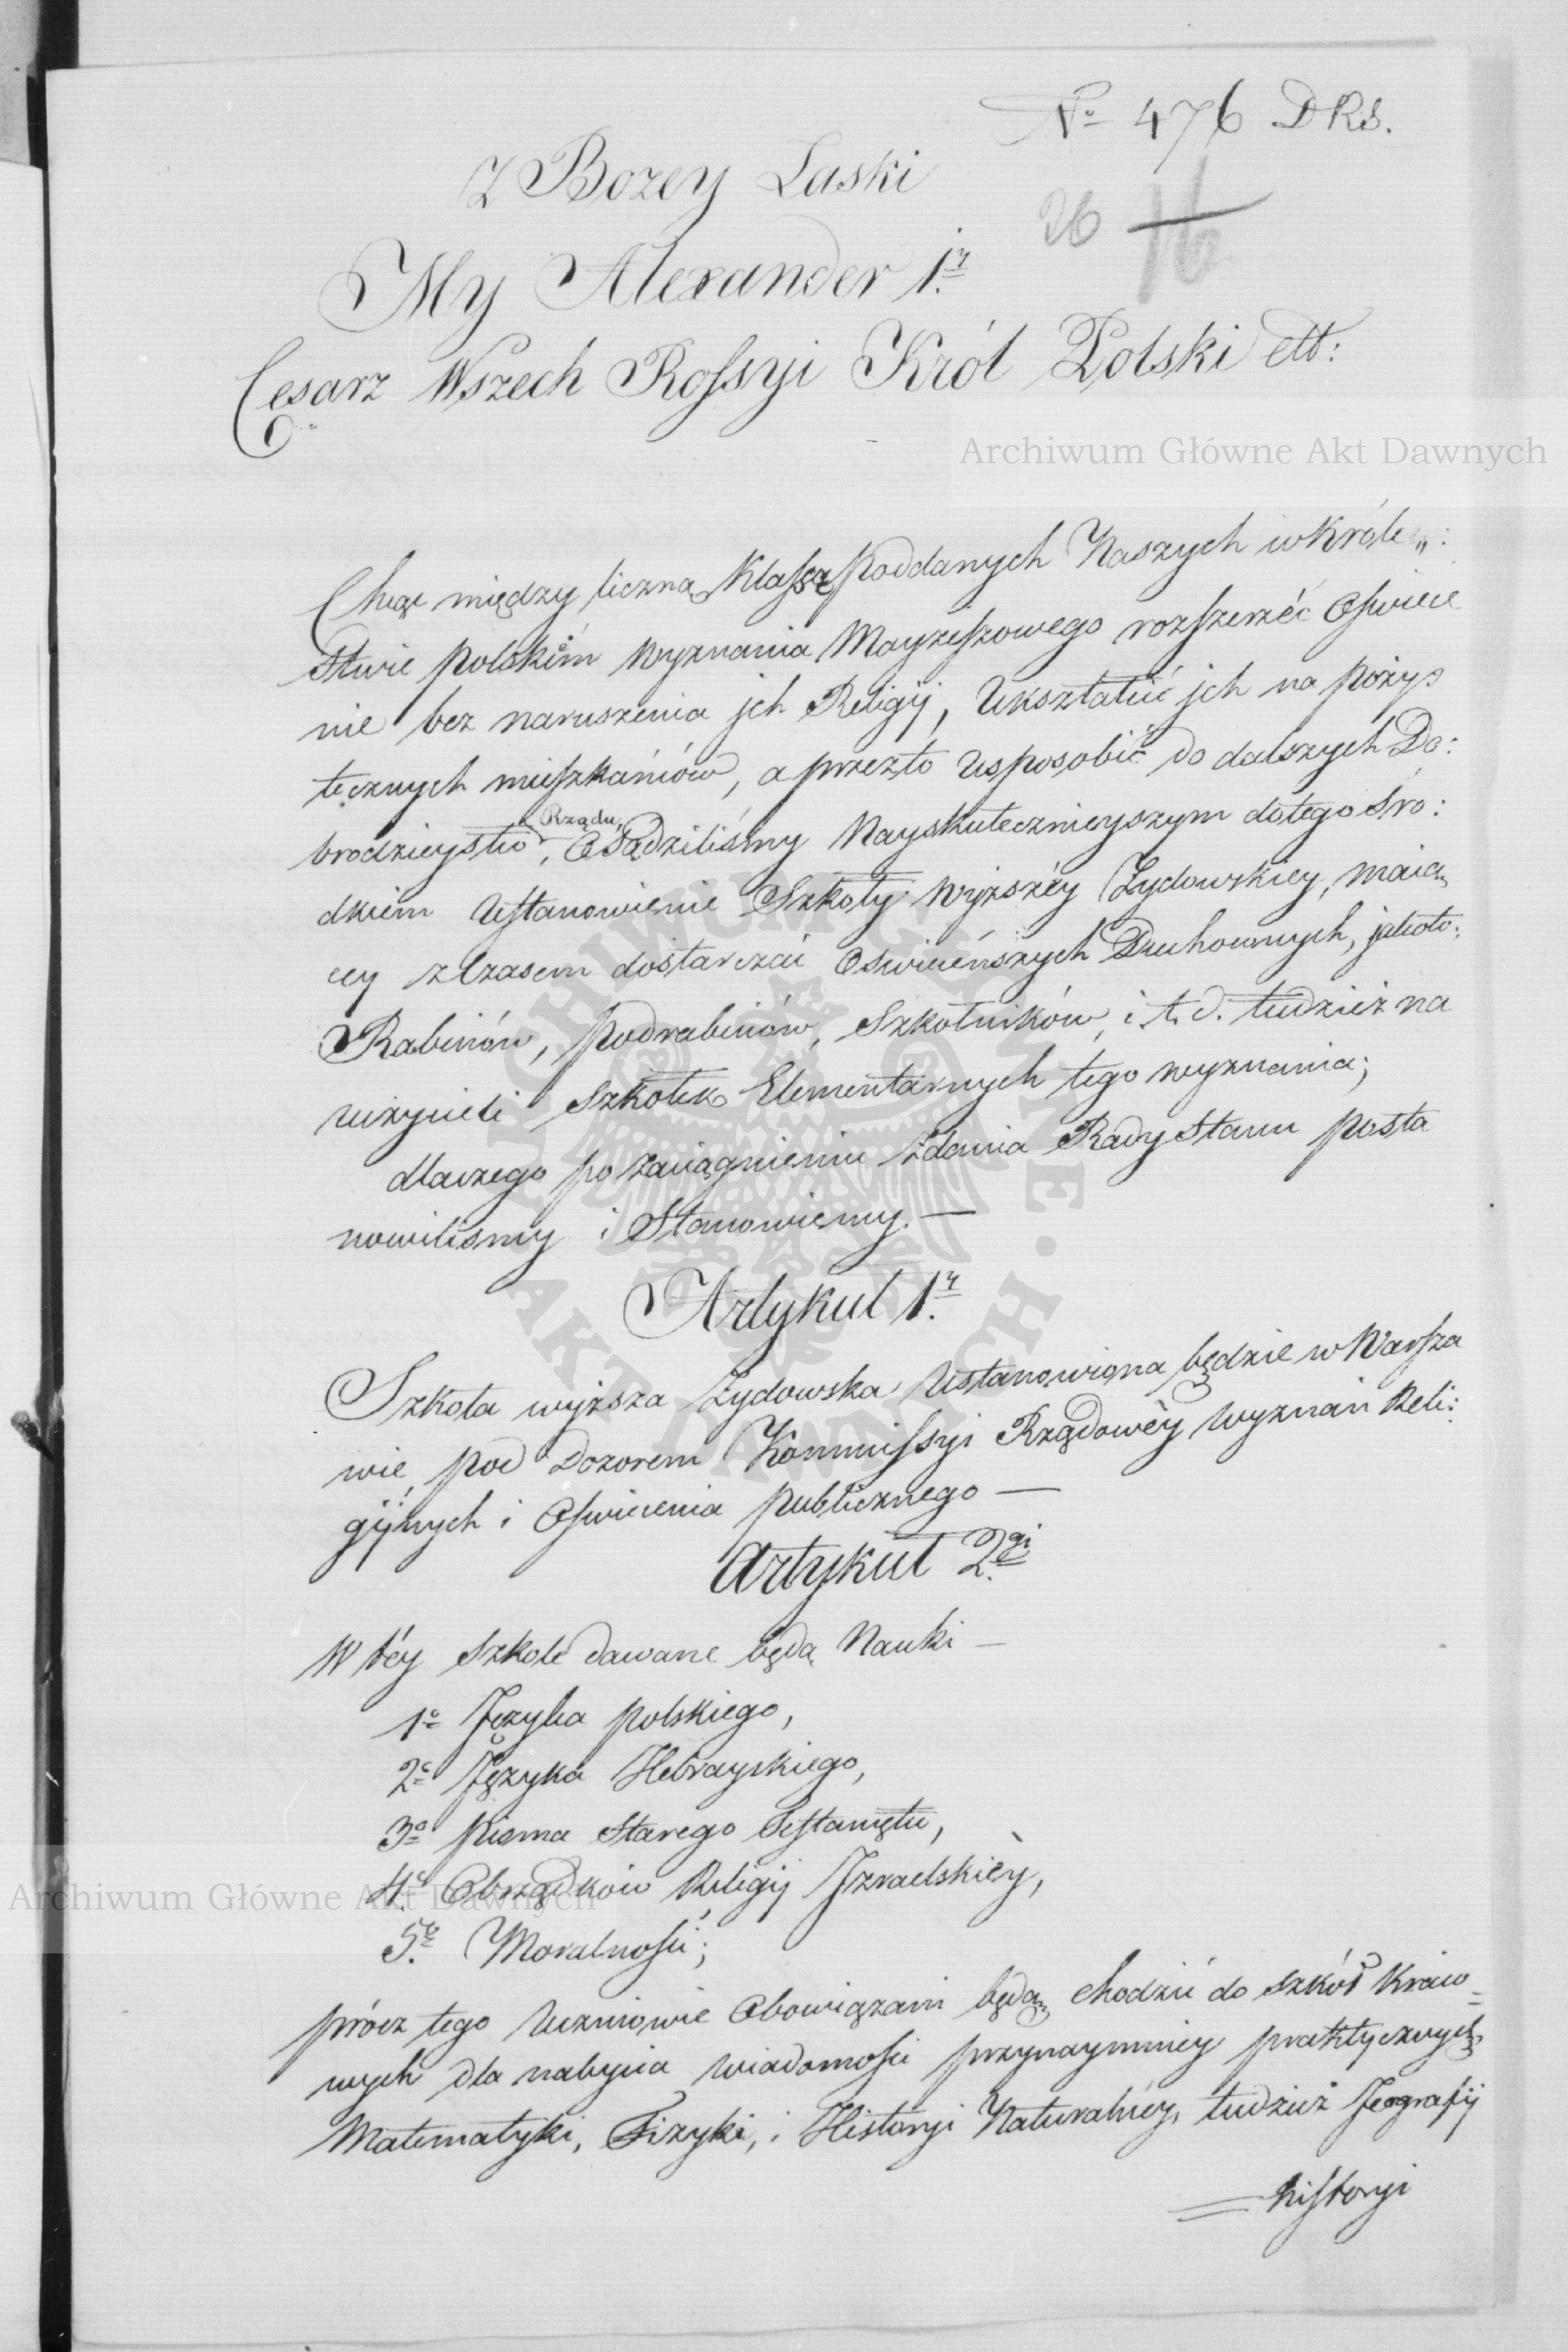 № 476 DRS.
Z Bozey Laski
26 16
My Alexander 1.y
Cesarz Wszech Rossyi Król Polski ett:
Archiwum Główne Akt Dawnych
Chcąc między liczną Klassą poddanych Naszych w Króle„:
stwie polskiém wyznania Mayżeszowego rozszerzéć Oświece
nie bez naruszenia jch Religij, Ukształcić jch na pożyt
tecznych mieszkańców, a przezto Usposobić do dalszych Do:
brodzieystw Rządu, Osądziliśmy Nayskutecznieyszym dotego śro:
dkiem Ustanowienie Szkoły wyższéy Żydowskiey, maią
cey zczasem dostarczać Oświeceńszych Duchownych, jakoto:
Rabinów, podrabinów, Szkolników, i. t. d. tudzież na
uczycieli szkółek Elementarnych tego wyznania;
dlaczego po zaciągnieniu zdania Rady Stanu posta
nowiliśmy i Stanowiemy. —
Artykuł 1.y
Szkoła wyższa Żydowska Ustanowiona będzie w Warsza
wie, pod Dozorem Kommissyi Rządowéy Wyznań Reli:
gijnych i Oświecenia publicznego —
Artykuł 2.gi
W téy Szkole dawane będą Nauki —
1o Języka polskiego,
2o Języka Hebrayskiego,
3o pisma Starego Testamętu,
4o Obrządków Religij Jzraelskiéy,
Archiwum Główne Akt Dawnych
5o Moralności;
prócz tego Uczniowie Obowiązani będą chodzić do szkół Kraio=
wych dla nabycia wiadomości przynaymniey praktycznych
Matematyki, Fizyki, i Historyi Naturalnéy, tudzież Jeografij
= historyi